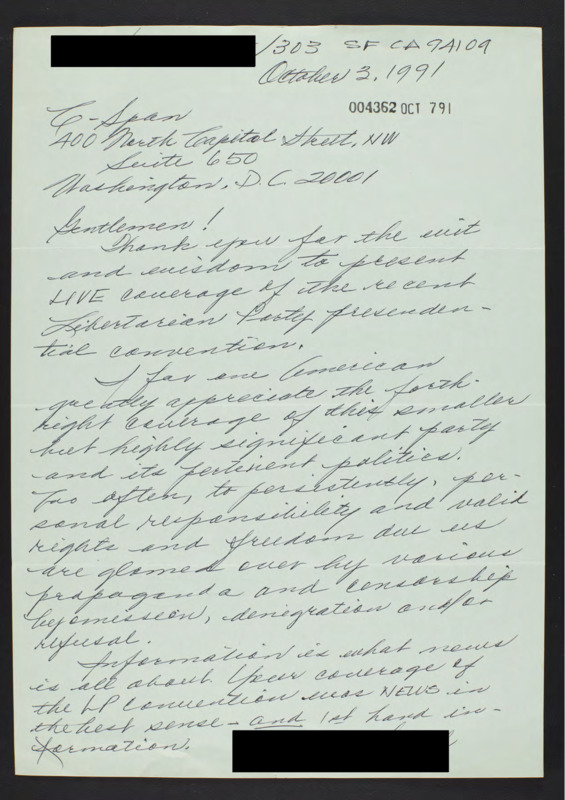 /303 SF CA 94109
October 3, 1991
004362 OCT 791
C-Span
400 North Capital Street, NW
Suite 650
Washington, D.C. 20001
Gentlemen!
Thank you for the wit
and wisdom to present
LIVE coverage of the recent
Libertarian Party presiden-
tial convention.
I for one American
greatly appreciate the forth-
right coverage of this smaller
but highly significant party
and its pertinent politics.
Too often, to persistently, per-
sonal responsibility and valid
rights and freedom due us
are glomed over by various
propaganda and censorship
by omission, denigration and/or
refusal.
Information is what news
is all about. Your coverage of
the LP Convention was NEWS in
the best sense - and 1st hand in-
formation.